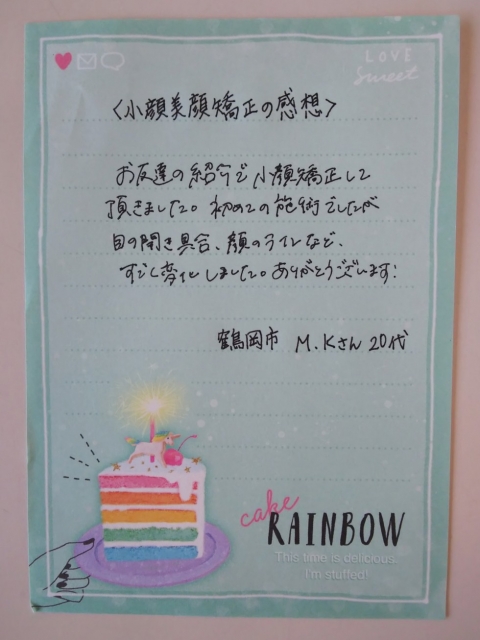 LOVE
Sweet
〈小顔美顔矯正の感想〉
お友達の紹介で小顔矯正して
頂きました。初めての施術でしたが
目の開き具合、顔のラインなど、
すごく変化しました。ありがとうございます!
鶴岡市 M.Kさん 20代
cake
RAINBOW
This time is delicious.
I'm stuffed!